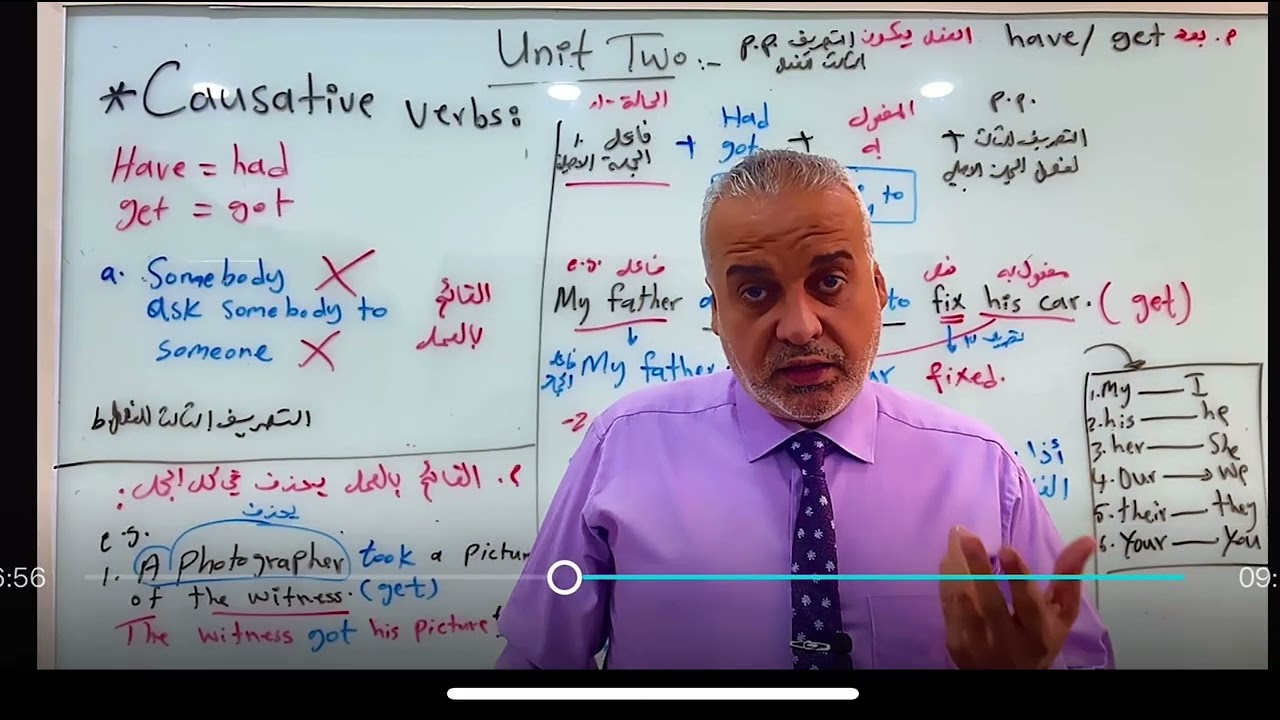 Unit Two :-
م. بعد have/ get الفعل يكون التصريف الثالث للفعل p.p.
*Causative verbs:
Have = had
get = got
a. Somebody X
ask somebody to
someone X
القائم
بالعمل
b. التصريف الثالث للفعل
الحالة -1-
فاعل
+
Had
got
+
المفعول
به
+
p.p.
التصريف الثالث
to
e.g. فاعل
فعل
مفعول به
My father a to fix his car. (get)
تصريف 3
My father fixed.
-2
أذا
1. My — I
2. his — he
3. her — She
4. Our → We
5. their — they
6. Your — You
م. القائم بالعمل يحذف في كل الجمل :
يحذف
e.g.
1. A Photographer took a pictur
of the witness. (get)
The witness got his picture
6:56
09: